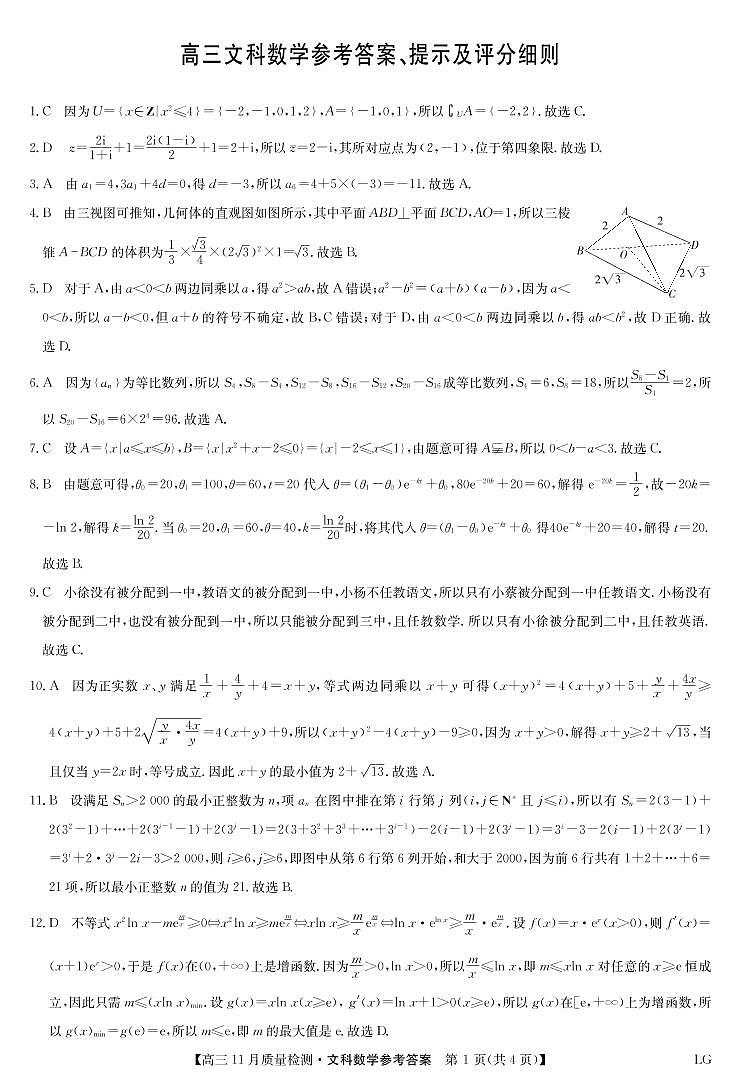 高三文科数学参考答案、提示及评分细则
1. C 因为U={x∈Z|x²≤4}={-2,-1,0,1,2},A={-1,0,1},所以∁UA={-2,2}.故选C.
2. D z=2i/(1+i)+1=2i(1-i)/2+1=2+i,所以z̄=2-i,其所对应点为(2,-1),位于第四象限.故选D.
3. A 由a₁=4,3a₁+4d=0,得d=-3,所以a₆=4+5×(-3)=-11.故选A.
4. B 由三视图可推知,几何体的直观图如图所示,其中平面ABD⊥平面BCD,AO=1,所以三棱
锥A-BCD的体积为1/3×√3/4×(2√3)²×1=√3.故选B.
A
2
2
B
O
D
2√3
2√3
C
5. D 对于A,由a<0<b两边同乘以a,得a²>ab,故A错误;a²-b²=(a+b)(a-b),因为a<
0<b,所以a-b<0,但a+b的符号不确定,故B,C错误;对于D,由a<0<b两边同乘以b,得ab<b²,故D正确.故
选D.
6. A 因为{aₙ}为等比数列,所以S₄,S₈-S₄,S₁₂-S₈,S₁₆-S₁₂,S₂₀-S₁₆成等比数列,S₄=6,S₈=18,所以(S₈-S₄)/S₄=2,所
以S₂₀-S₁₆=6×2⁴=96.故选A.
7. C 设A={x|a≤x≤b},B={x|x²+x-2≤0}={x|-2≤x≤1},由题意可得A⫋B,所以0<b-a<3.故选C.
8. B 由题意可得,θ₀=20,θ₁=100,θ=60,t=20代入θ=(θ₁-θ₀)e^(-kt)+θ₀,80e^(-20k)+20=60,解得e^(-20k)=1/2,故-20k=
-ln 2,解得k=ln 2/20.当θ₀=20,θ₁=60,θ=40,k=ln 2/20时,将其代入θ=(θ₁-θ₀)e^(-kt)+θ₀得40e^(-kt)+20=40,解得t=20.
故选B.
9. C 小徐没有被分配到一中,教语文的被分配到一中,小杨不任教语文,所以只有小蔡被分配到一中任教语文.小杨没有
被分配到二中,也没有被分配到一中,所以只能被分配到三中,且任教数学.所以只有小徐被分配到二中,且任教英语.
故选C.
10. A 因为正实数x、y满足1/x+4/y+4=x+y,等式两边同乘以x+y可得(x+y)²=4(x+y)+5+y/x+4x/y≥
4(x+y)+5+2√(y/x·4x/y)=4(x+y)+9,所以(x+y)²-4(x+y)-9≥0,因为x+y>0,解得x+y≥2+√13,当
且仅当y=2x时,等号成立.因此x+y的最小值为2+√13.故选A.
11. B 设满足Sₙ>2 000的最小正整数为n,项aₙ在图中排在第i行第j列(i,j∈N*且j≤i),所以有Sₙ=2(3-1)+
2(3²-1)+…+2(3^(i-1)-1)+2(3^j-1)=2(3+3²+3³+…+3^(i-1))-2(i-1)+2(3^j-1)=3^i-3-2(i-1)+2(3^j-1)
=3^i+2·3^j-2i-3>2 000,则i≥6,j≥6,即图中从第6行第6列开始,和大于2000,因为前6行共有1+2+…+6=
21项,所以最小正整数n的值为21.故选B.
12. D 不等式x²ln x-me^(m/x)≥0⇔x²ln x≥me^(m/x)⇔xln x≥m/x e^(m/x)⇔ln x·e^(ln x)≥m/x·e^(m/x).设f(x)=x·e^x(x>0),则f′(x)=
(x+1)e^x>0,于是f(x)在(0,+∞)上是增函数.因为m/x>0,ln x>0,所以m/x≤ln x,即m≤xln x对任意的x≥e恒成
立,因此只需m≤(xln x)min.设g(x)=xln x(x≥e),g′(x)=ln x+1>0(x≥e),所以g(x)在[e,+∞)上为增函数,所
以g(x)min=g(e)=e,所以m≤e,即m的最大值是e.故选D.
【高三11月质量检测·文科数学参考答案 第1页(共4页)】 LG